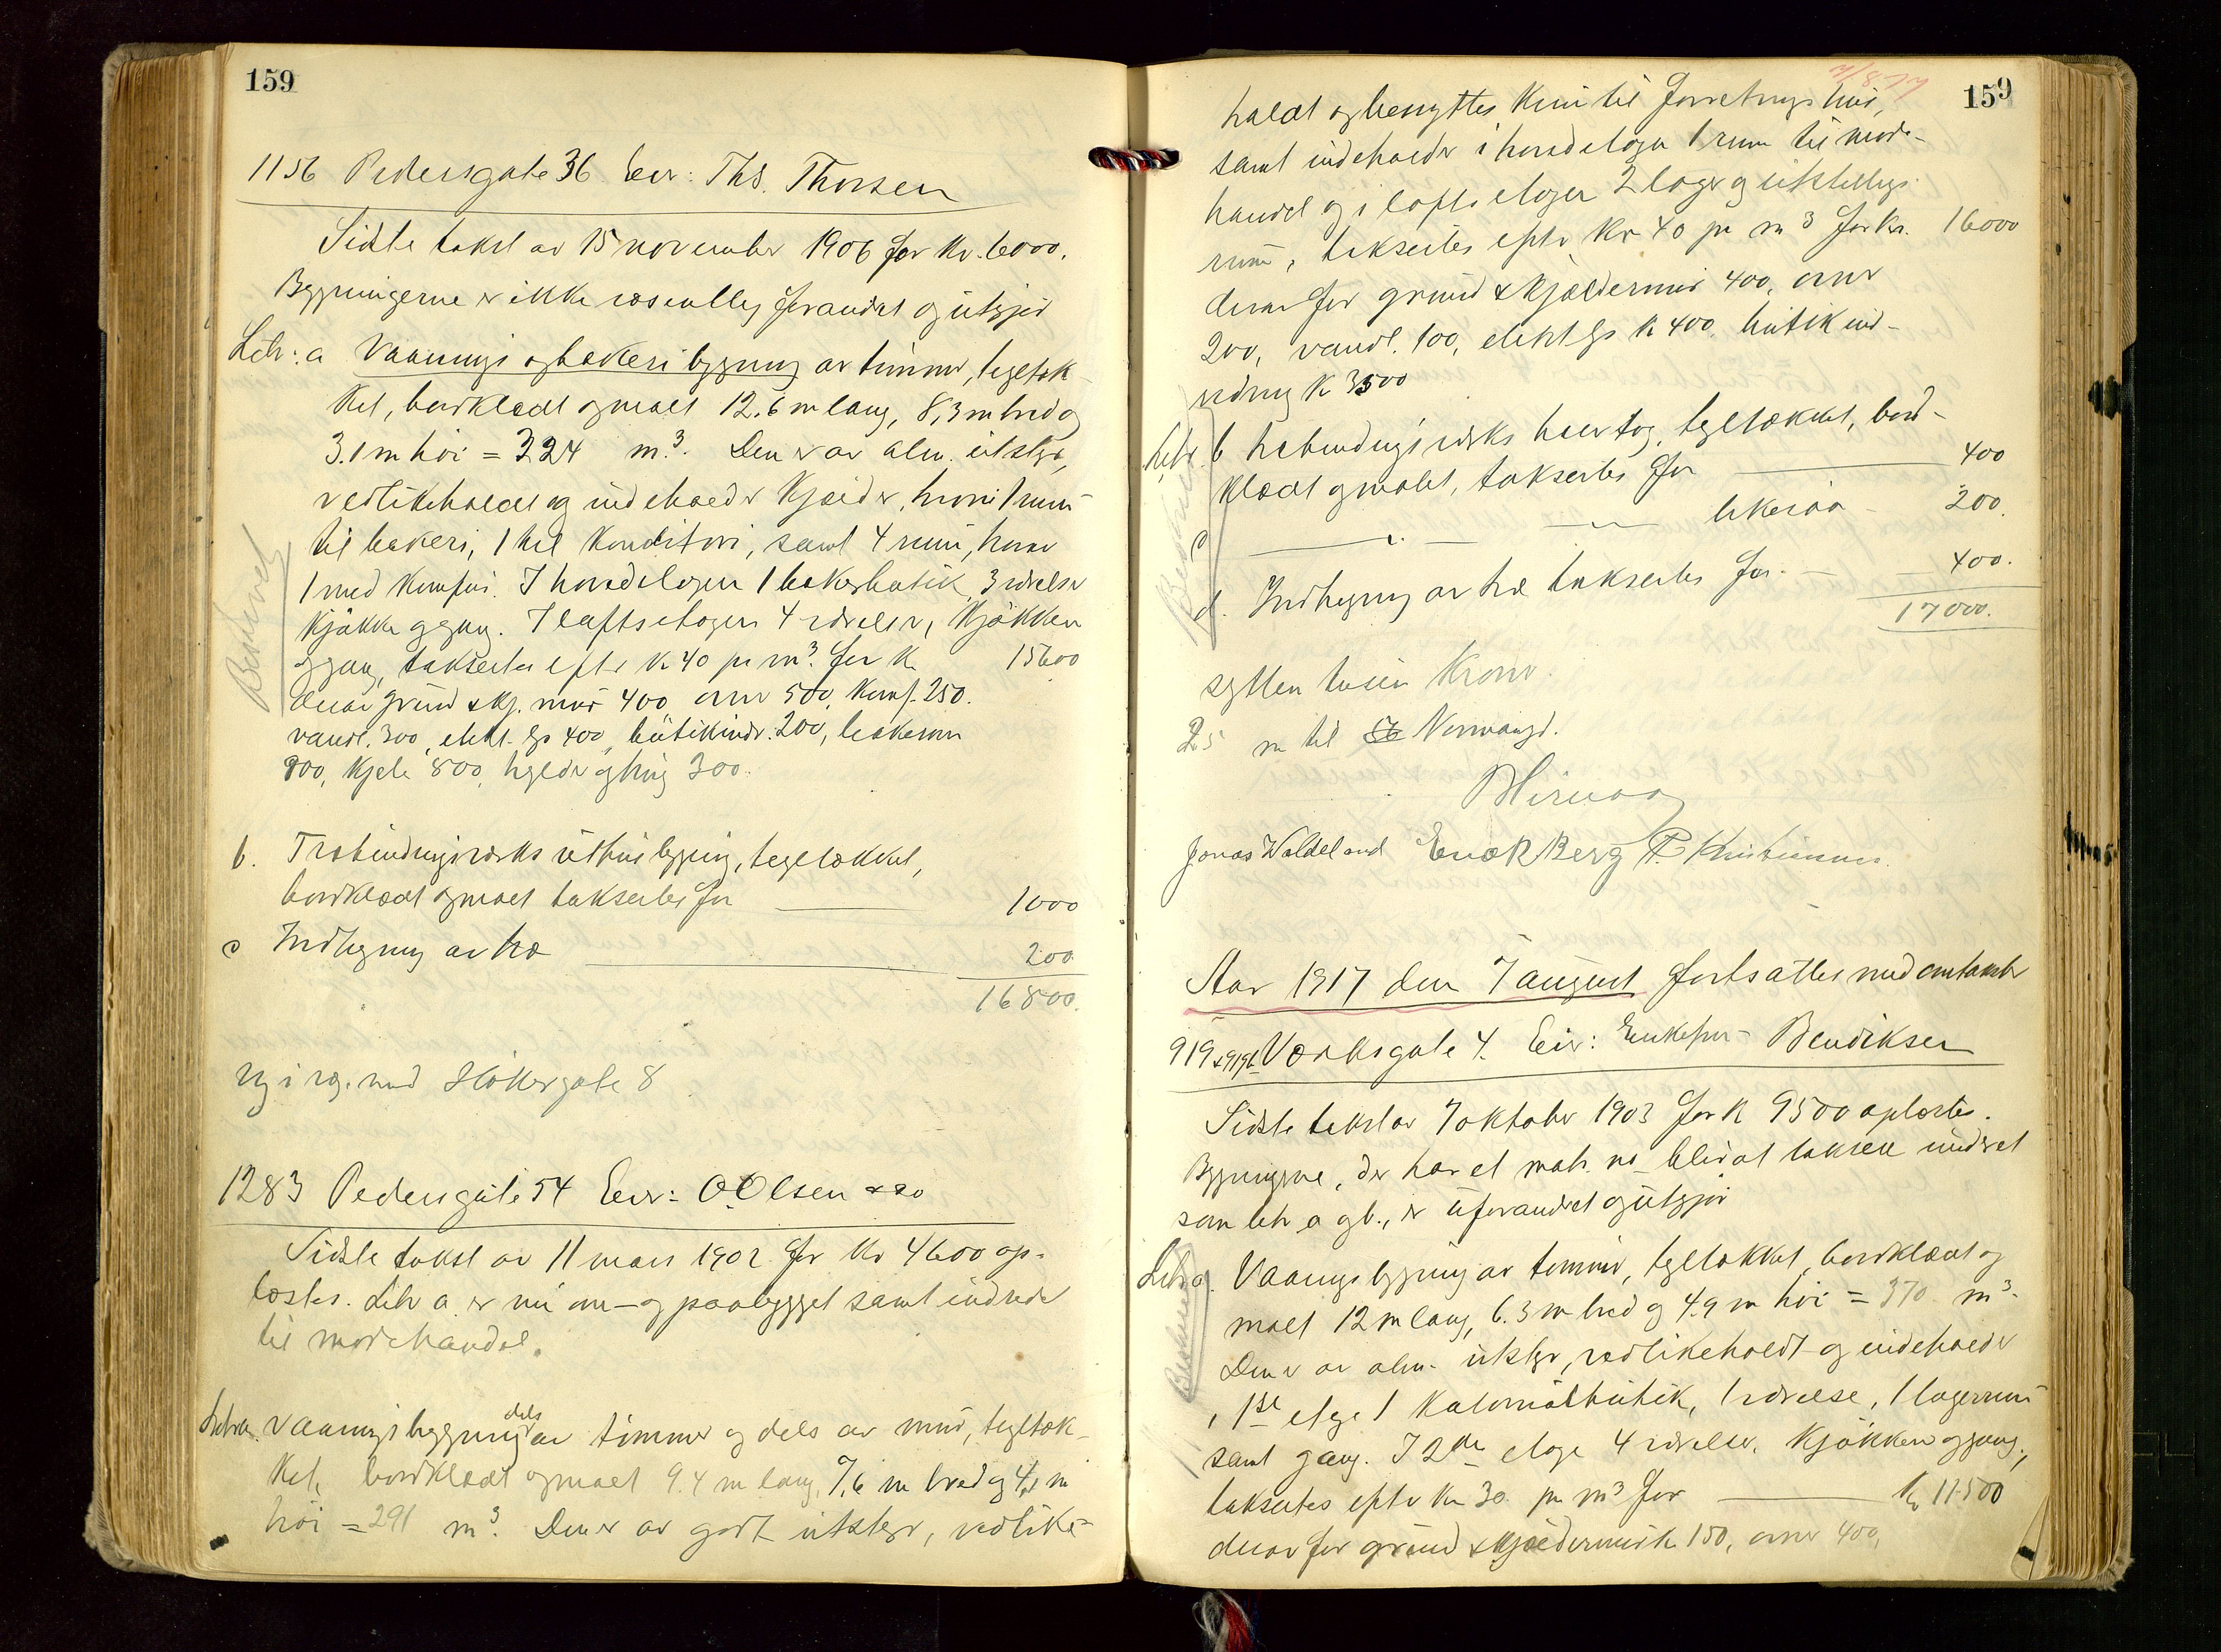 159
1156 Pedersgate 36 Eier: Ths. Thorsen
Sidste takst av 15 november 1906 for kr. 6000.
Bygningerne er ikke væsentlig forandret og utgjør
Litr: a Vaanings og bakeri bygning av tømmer, tegltæk-
ket, bordklædt og malt 12.6 m lang, 8,3 m bred og
3.1 m høi = 324 m³. Den er av alm. utstyr,
vedlikeholdt og indeholder kjælder, hvori 1 rum
til bakeri, 1 til konditori, samt 4 rum, hvorav
1 med komfur. I hovedetagen 1 bakerbutik, 3 værelser
kjøkken og gang. I loftsetagen 4 værelser, kjøkken
og gang, taksertes efter kr 40 pr m³. for kr 15600
derav grund & kj. mur 400 ovner 500, komf. 250.
vandl. 300, elekt. lys 400, butikindr. 200, bakerovn
800, kjele 800, hylder og ting 300.
Beskrevet
b. Træbindingsværks uthusbygning, tegltækket,
bordklædt og malt taksertes for 1000
c Indhegning av træ 200
16800.
Ny i veg. med Støkergate 8
1283 Pedersgate 54 Eier: O. Olsen & co
Sidste takst av 11 mars 1902 for kr 4600 op-
læstes. Litr a er nu om- og paabygget samt indredet
til motehandel.
Litr a. Vaaningsbygning dels av tømmer og dels av mur, tegltæk-
ket, bordklædt og malt 9.4 m lang, 7,6 m bred og 4,1 m
høi = 291 m³. Den er av godt utstyr, vedlike-
159
holdt og benyttes kun til forretningshus,
samt indeholder i hovedetagen 1 rum til mote-
handel og i loftsetagen 2 lager og utstillings-
rum, taksertes efter kr 40 pr m³ for kr. 16000
derav for grund & kjældermur 400, ovner
200, vandl. 100, elekt lys kr 400. butikind-
redning kr 3500
Litr. b træbindingsværks halvtag, tegltækket, bord-
klædt og malt, taksertes for 400
c likesaa 200.
d. Indhegning av træ taksertes for. 400.
17000.
sytten tusen kroner.
25 m til Nermangd.
Jonas Waldeland Enok Berg P. Kristiansen.
Aar 1917 den 7 august fortsattes med omtakster
919 & 919b Værksgate 4. Eier: Enkefru Bendiksen
Sidste takst av 7 oktober 1903 for kr 9500 oplæstes.
Bygningerne, der har et matr. no blir at taksere underet
som litr a og b., er uforandret og utgjør
Litr a. Vaaningsbygning av tømmer, tegltækket, bordklædt og
malt 12 m lang, 6.3 m bred og 4.9 m høi = 370 m³.
Den er av alm. utstyr, vedlikeholdt og indeholder
i 1ste etage 1 kolonialbutik, 1 værelse, 1 lagerrum
samt gang. I 2den etage 4 værelser, kjøkken og gang,
taksertes efter kr 30 pr m³ for kr 11500
derav for grund & kjældermur kr 150, ovner 400,